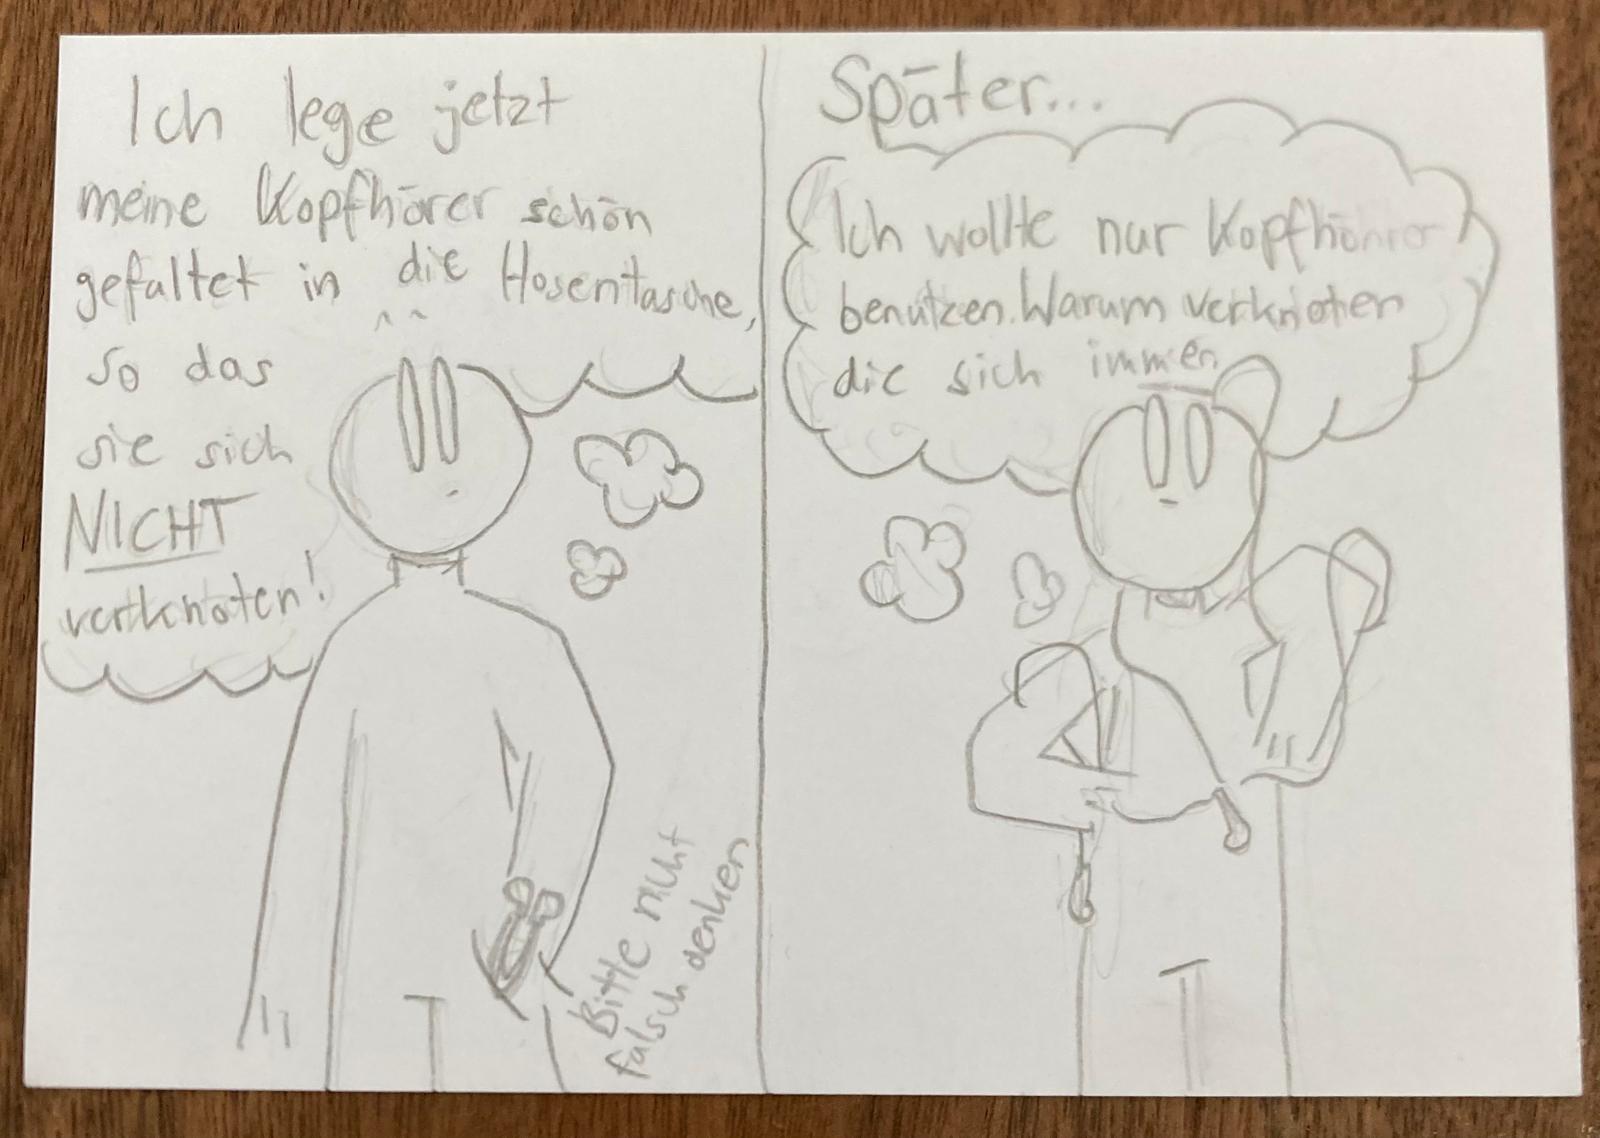 Ich lege jetzt
meine Kopfhörer schön
gefaltet in die Hosentasche,
so das
sie sich
NICHT
verknoten!
Bitte nicht
falsch denken
Später...
Ich wollte nur Kopfhörer
benutzen. Warum verknoten
die sich immer.